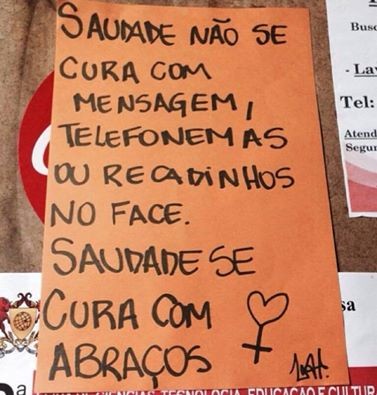 SAUDADE NÃO SE
CURA COM
MENSAGEM,
TELEFONEMAS
OU RECADINHOS
NO FACE.
SAUDADE SE
CURA COM
ABRAÇOS
Busc
- Lav
Tel:
Atend
Segur
sa
CIÊNCIAS, TECNOLOGIA, EDUCAÇÃO E CULTUR